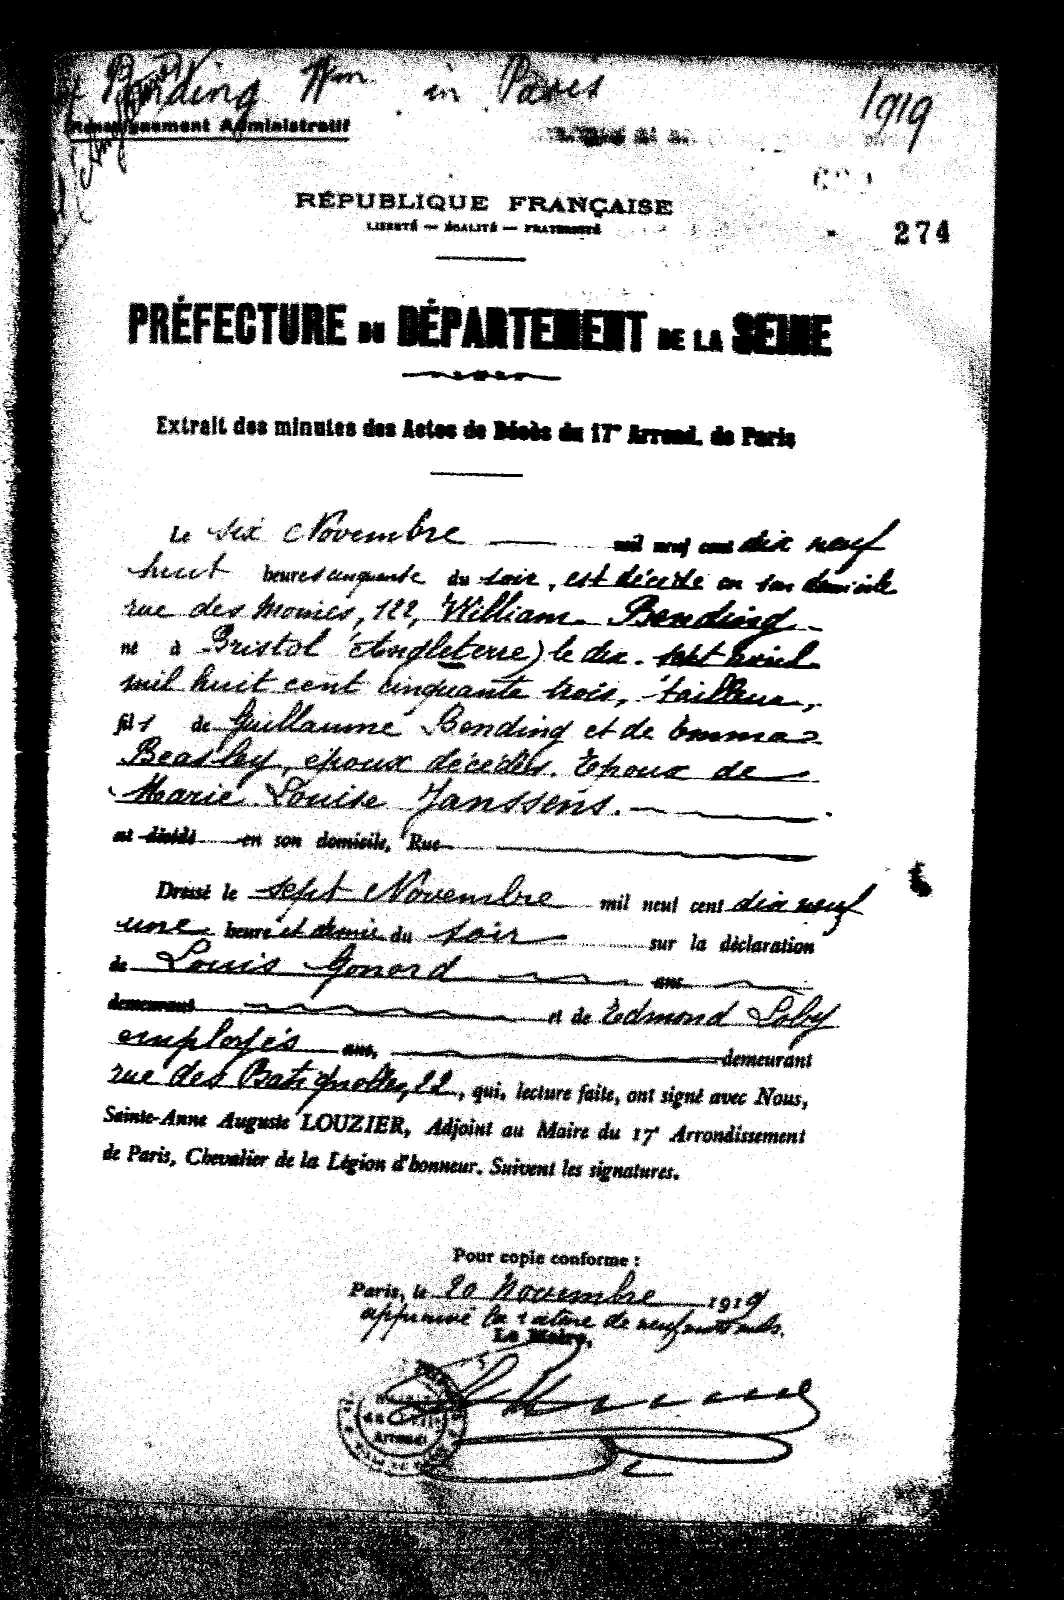 Bending Wm in Paris
1919
Renseignement Administratif
RÉPUBLIQUE FRANÇAISE
LIBERTÉ — ÉGALITÉ — FRATERNITÉ
274
PRÉFECTURE DU DÉPARTEMENT DE LA SEINE
Extrait des minutes des Actes de Décès du 17e Arrond. de Paris
Le six Novembre mil neuf cent dix neuf
huit heures cinquante du soir, est décédé en son domicile
rue des Moines, 122, William Bending
né à Bristol (Angleterre) le dix sept avril
mil huit cent cinquante trois, tailleur,
fils de Guillaume Bending et de Emma
Beasley, époux décédés. Epoux de
Marie Louise Janssens.
est décédé en son domicile, Rue
Dressé le sept Novembre mil neuf cent dix neuf
une heure et demie du soir sur la déclaration
de Louis Gonord ans
demeurant et de Edmond Loby
employés ans, demeurant
rue des Batignolles, 22, qui, lecture faite, ont signé avec Nous,
Sainte-Anne Auguste LOUZIER, Adjoint au Maire du 17e Arrondissement
de Paris, Chevalier de la Légion d'honneur. Suivent les signatures.
Pour copie conforme :
Paris, le 20 Novembre 1919
approuvé la rature de neuf mots nuls.
Le Maire,